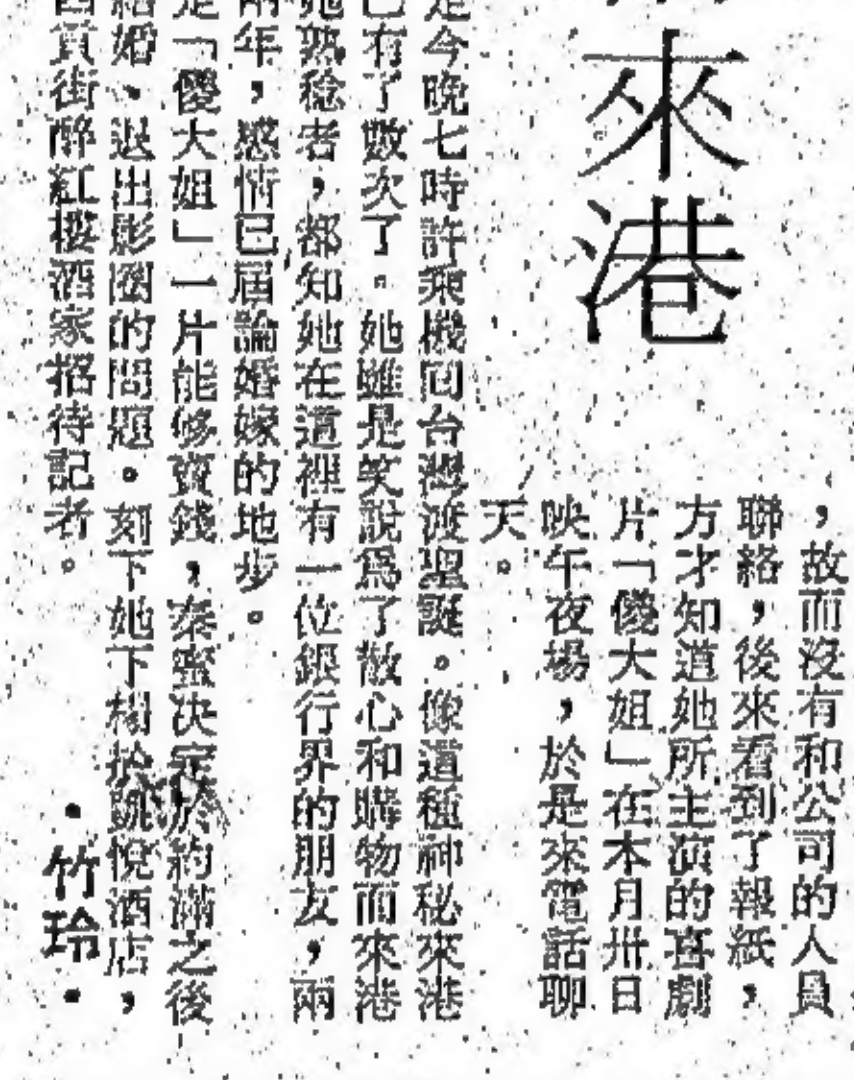 來港
，故而沒有和公司的人員
聯絡，後來看到了報紙，
方才知道她所主演的喜劇
片「儍大姐」在本月卅日
映午夜場，於是來電話聊
天。
是今晚七時許乘機回台灣渡聖誕。像這種神秘來港
已有了數次了。她雖是笑說爲了散心和購物而來港
她熟稔者，都知她在這裡有一位銀行界的朋友，兩
兩年，感情已屆論婚嫁的地步。
是「儍大姐」一片能够賣錢，秦蜜决定於約滿之後
結婚、退出影圈的問題。刻下她下榻於凱悅酒店，
西貢街醉紅樓酒家招待記者。
·竹玲·